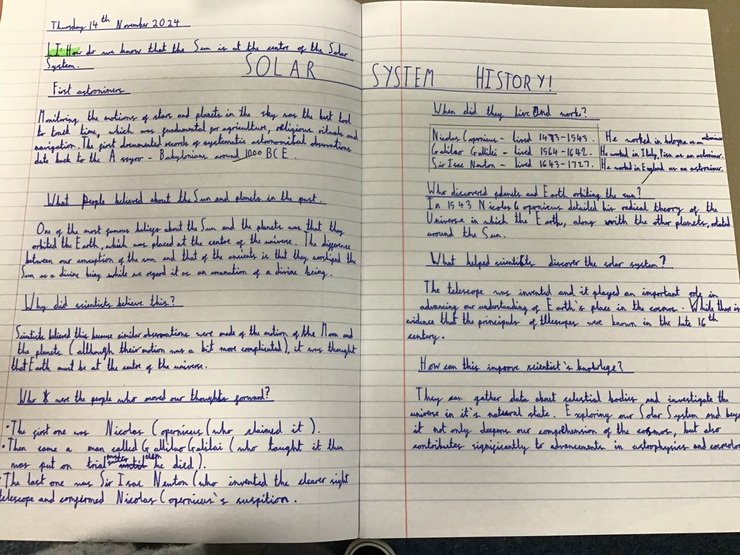 Thursday 14th November 2024
LI: How do we know that the Sun is at the centre of the Solar
System.
SOLAR SYSTEM HISTORY!
First astronimers
Monitoring the motions of stars and planets in the sky was the best tool
to track time, which was fundamental for agriculture, religious rituals and
navigation. The first documented records of systematic astronomical observations
date back to the Assyro - Babylonians around 1000 BCE.
What people believed about the Sun and planets in the past.
One of the most famous beliefs about the Sun and the planets was that they
orbited the Earth, which was placed at the centre of the universe. The difference
between our conception of the sun and that of the ancients is that they worshiped the
Sun as a divine being while we regard it as an emanation of a divine being.
Why did scientists believe this?
Scintists believed this because similar observations were made of the motion of the Moon and
the planets (although their motion was a bit more complicated), it was thought
that Earth must be at the centre of the universe.
Who were the people who moved our thoughts forward?
• The first one was Nicolas Copernicus (who claimed it).
• Then came a man called Gallilao Galilai (who taught it then
was put on trial until he died).
• The last one was Sir Isac Newton (who invented the clearer sight
telescope and confermed Nicolas Copernicus's suspition.
When did they live and work?
Nicolas Copernicus - lived 1473-1543. He worked in as an
Galilao Gallilei - lived 1564-1642. He worked in Italy, Pisa as an astronimor.
Sir Isac Newton - lived 1643-1727. He worked in England as an astronimor.
Who discovered planets and Earth orbiting the sun?
In 1543 Nicolas Copernicus detailed his radical theory of the
Universe in which the Earth, along with the other planets, rotated
around the Sun.
What helped scientists discover the solar system?
The telescope was invented and it played an important role in
advancing our understanding of Earth's place in the cosmos. While there is
evidence that the principals of telescopes were known in the late 16th
century.
How can this improve scientist's knowlege?
They can gather data about celestial bodies and investigate the
universe in it's natural state. Exploring our Solar System and
it not only deepens our comprehension of the cosmos, but also
contributes significantly to advancements in astrophysics and